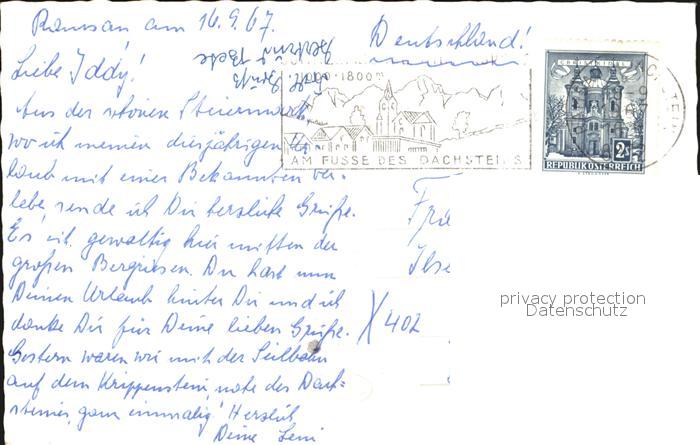 Ramsau am 16.9.67.
Liebe Iddy!
Aus der schönen Steiermark
wo ich meinen diesjährigen Ur-
laub mit einer Bekannten ver-
lebe, sende ich Dir herzliche Grüße.
Es ist gewaltig hier mitten der
großen Bergriesen. Du hast nun
Deinen Urlaub hinter Dir und ich
danke Dir für Deine lieben Grüße.
Gestern waren wir mit der Seilbahn
auf dem Krippenstein, nahe des Dach-
steines, ganz einmalig! Herzlich
Deine Leni
Deutschland!
1000-1800
AM FUSSE DES DACHSTEINS
CHRISTKINDL
2S
REPUBLIK ÖSTERREICH
Frau
Ilse
X 402
privacy protection
Datenschutz